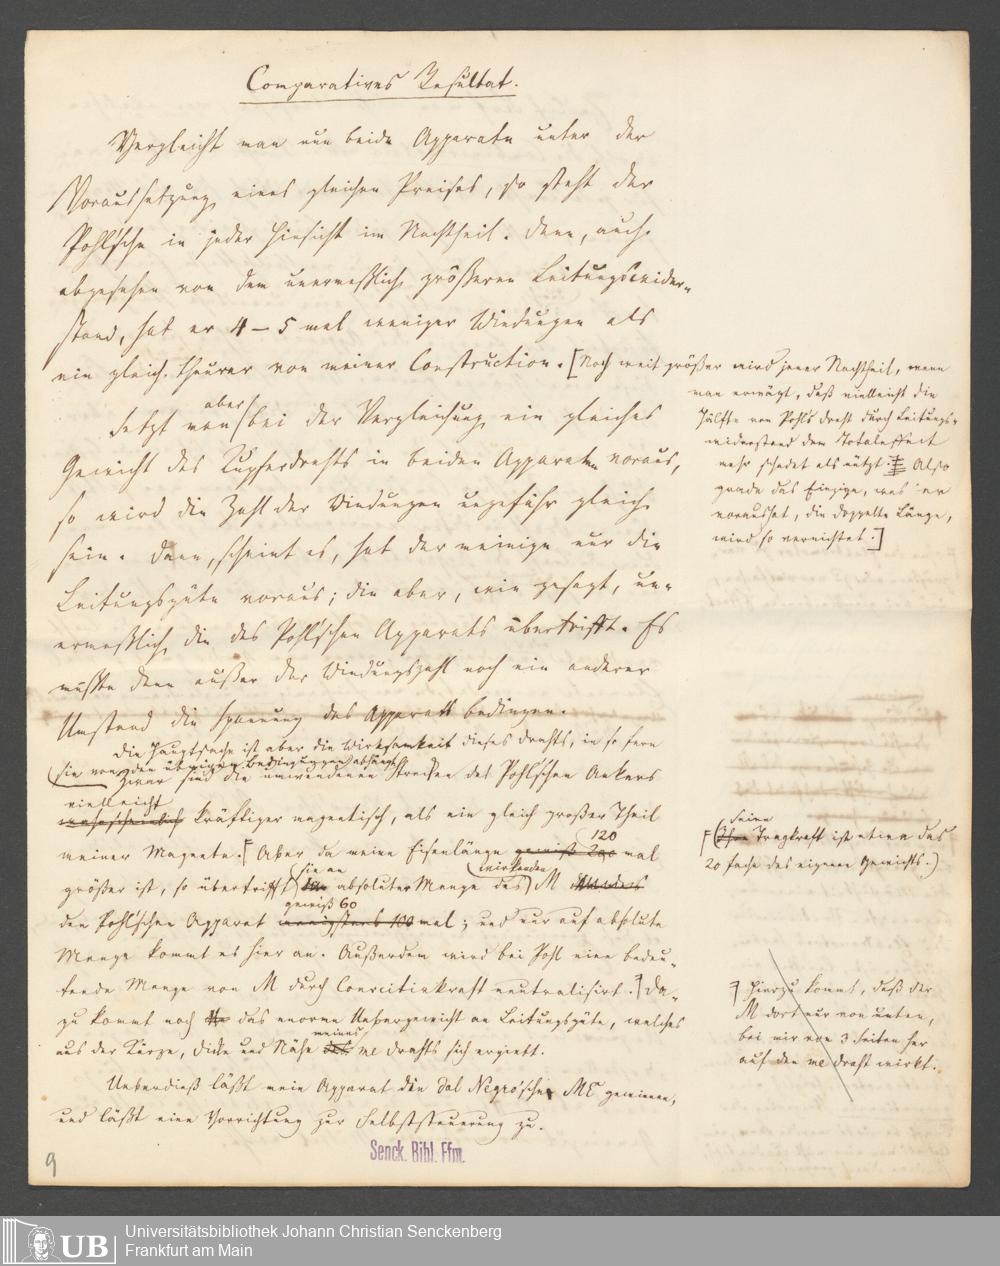 Comparatives Resultat.
Vergleicht man nun beide Apparate unter der
Voraussetzung eines gleichen Preises, so steht der
Pohl'sche in jeder Hinsicht im Nachtheil. Denn, auch
abgesehen von dem unermeßlich größeren Leitungswider-
stand, hat er 4–5 mal weniger Windungen als
ein gleich theurer von meiner Construction. [Noch weit größer wird jener Nachtheil, wenn
man erwägt, daß vielleicht die
Hälfte von Pohl's Draht durch Leitungs-
widerstand dem Totaleffect
mehr schadet als nützt. Also
grade das Einzige, was er
voraushat, die doppelte Länge,
wird so vernichtet.]
aber
Setzt man bei der Vergleichung ein gleiches
Gewicht des Kupferdrahts in beiden Apparaten voraus,
so wird die Zahl der Windungen ungefähr gleich
sein. Denn, scheint es, hat der meinige nur die
Leitungsgüte voraus; die aber, wie gesagt, un-
ermeßlich die des Pohl'schen Apparats übertrifft. Es
müßte denn außer der Windungszahl noch ein anderer
Umstand die Spannung des Apparats bedingen.
Die Hauptsache ist aber die Wirksamkeit dieses Drahts, in so fern
sie von den übrigen Bedingungen abhängt.
Zwar sind die umwundenen Streifen des Pohl'schen Ankers
vielleicht
wahrscheinlich kräftiger magnetisch, als ein gleich großer Theil
meiner Magnete. Aber da meine Eisenlänge gewiß 200 mal
120
größer ist, so übertrifft die absolute Menge des M
sie an
wirkenden
den Pohl'schen Apparat wenigstens 100 mal; und nur auf absolute
gewiß 60
Menge kommt es hier an. Außerdem wird bei Pohl eine bedeu-
tende Menge von M durch Coercitivkraft neutralisirt. Da-
zu kommt noch das enorme Uebergewicht an Leitungsgüte, welches
aus der Kürze, Dicke und Nähe meines Drahts sich ergiebt.
Ueberdieß läßt mein Apparat den Dal Negro'schen ME gewinnen,
und läßt eine Vorrichtung zur Selbststeuerung zu.
(Seine Tragkraft ist etwa das
20 fache des eigenen Gewichts.)
Hierzu kommt, daß der
M dort nur von unten,
bei mir von 3 Seiten her
auf den Draht wirkt.
9
Senck. Bibl. Ffm.
UB
Universitätsbibliothek Johann Christian Senckenberg
Frankfurt am Main